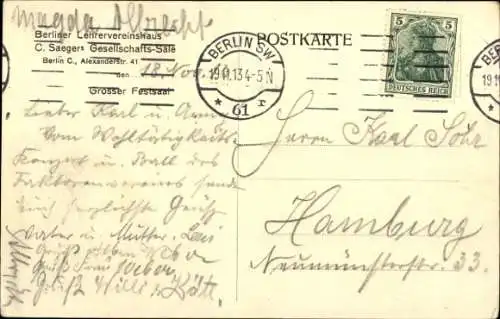 Magda Albrecht
Berliner Lehrervereinshaus
C. Saegers Gesellschafts-Säle
Berlin C., Alexanderstr. 41
den 18. Nov.
Grosser Festsaal
POSTKARTE
BERLIN SW
19.11.13 4-5 N
* 61 r
5 5
DEUTSCHES REICH
BERLIN
19.11
*
Lieber Karl u.
Vom Wohltätigkeits-
Konzert u. Ball des
Faktorenvereins sende
Euch herzlichste Grüße
Vater u. Mutter.
Gruß
Gruß Frau Weber
Gruß Willi u. Käte
Albrecht
Herrn Karl Söhr
Hamburg
Neumünsterstr. 33.